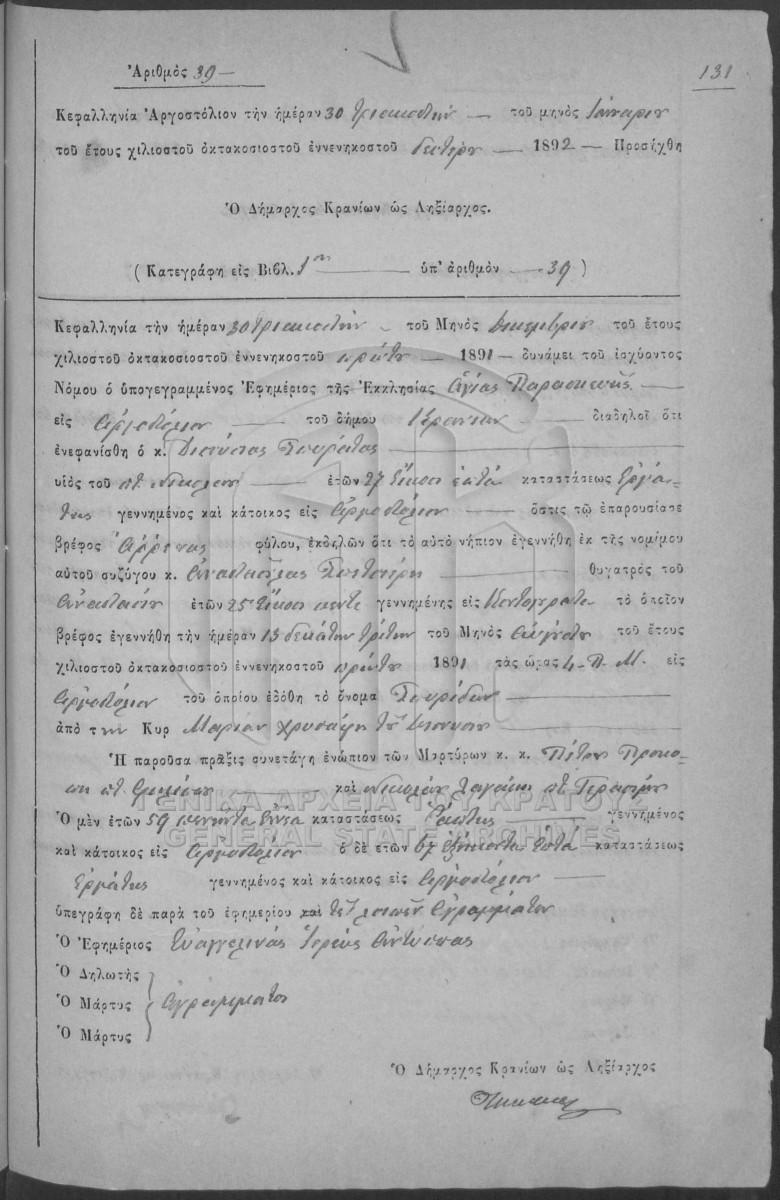 Ἀριθμὸς 39 — 131
Κεφαλληνία Ἀργοστόλιον τὴν ἡμέραν 30 τριακοστὴν — τοῦ μηνὸς
τοῦ ἔτους χιλιοστοῦ ὀκτακοσιοστοῦ ἐννενηκοστοῦ — 1892 — Προσήχθη
Ὁ Δήμαρχος Κρανίων ὡς Ληξίαρχος.
( Κατεγράφη εἰς Βιβλ. 1ον — ὑπ' ἀριθμὸν — 39 )
Κεφαλληνία τὴν ἡμέραν 30 τριακοστὴν — τοῦ Μηνὸς Δεκεμβρίου τοῦ ἔτους
χιλιοστοῦ ὀκτακοσιοστοῦ ἐννενηκοστοῦ πρώτου — 1891 — δυνάμει τοῦ ἰσχύοντος
Νόμου ὁ ὑπογεγραμμένος Ἐφημέριος τῆς Ἐκκλησίας Ἁγίας Παρασκευῆς —
εἰς Ἀργοστόλιον — τοῦ δήμου Κρανίων — διαδηλοῖ ὅτι
ἐνεφανίσθη ὁ κ. Διονύσιος —
υἱὸς τοῦ ποτ. Νικολάου — ἐτῶν 27 εἴκοσι ἑπτὰ καταστάσεως Ἐργά-
της γεννημένος καὶ κάτοικος εἰς Ἀργοστόλιον — ὅστις τῷ ἐπαρουσίασε
βρέφος Ἄρρενος φύλου, ἐκδηλῶν ὅτι τὸ αὐτὸ νήπιον ἐγεννήθη ἐκ τῆς νομίμου
αὐτοῦ συζύγου κ. — θυγατρὸς τοῦ
Ἀναστασίου ἐτῶν 25 εἴκοσι πέντε γεννημένης εἰς τὸ ὁποῖον
βρέφος ἐγεννήθη τὴν ἡμέραν 13 δεκάτην τρίτην τοῦ Μηνὸς Αὐγούστου τοῦ ἔτους
χιλιοστοῦ ὀκτακοσιοστοῦ ἐννενηκοστοῦ πρώτου 1891 τὰς ὥρας 4 Π. Μ. εἰς
Ἀργοστόλιον τοῦ ὁποίου ἐδόθη τὸ ὄνομα Σπυρίδων —
ἀπὸ την Κυρ Μαρίαν Χρυσάφη τοῦ Διονυσίου —
Ἡ παροῦσα πρᾶξις συνετάγη ἐνώπιον τῶν Μαρτύρων κ. κ. Πέτρου
— καὶ Νικολάου ποτ. Γερασίμου
ΓΕΝΙΚΑ ΑΡΧΕΙΑ ΤΟΥ ΚΡΑΤΟΥΣ
Ὁ μὲν ἐτῶν 59 πενῆντα ἐννέα καταστάσεως — γεννημένος
GENERAL STATE ARCHIVES
καὶ κάτοικος εἰς Ἀργοστόλιον ὁ δὲ ἐτῶν 67 ἑξήκοντα ἑπτὰ καταστάσεως
Ἐργάτης γεννημένος καὶ κάτοικος εἰς Ἀργοστόλιον —
ὑπεγράφη δὲ παρὰ τοῦ ἐφημερίου καὶ τῶν λοιπῶν ἀγραμμάτων
Ὁ Ἐφημέριος Εὐαγγελινὸς Ἱερεὺς Ἀντύπας
Ὁ Δηλωτὴς
Ὁ Μάρτυς Ἀγράμματοι
Ὁ Μάρτυς
Ὁ Δήμαρχος Κρανίων ὡς Ληξίαρχος